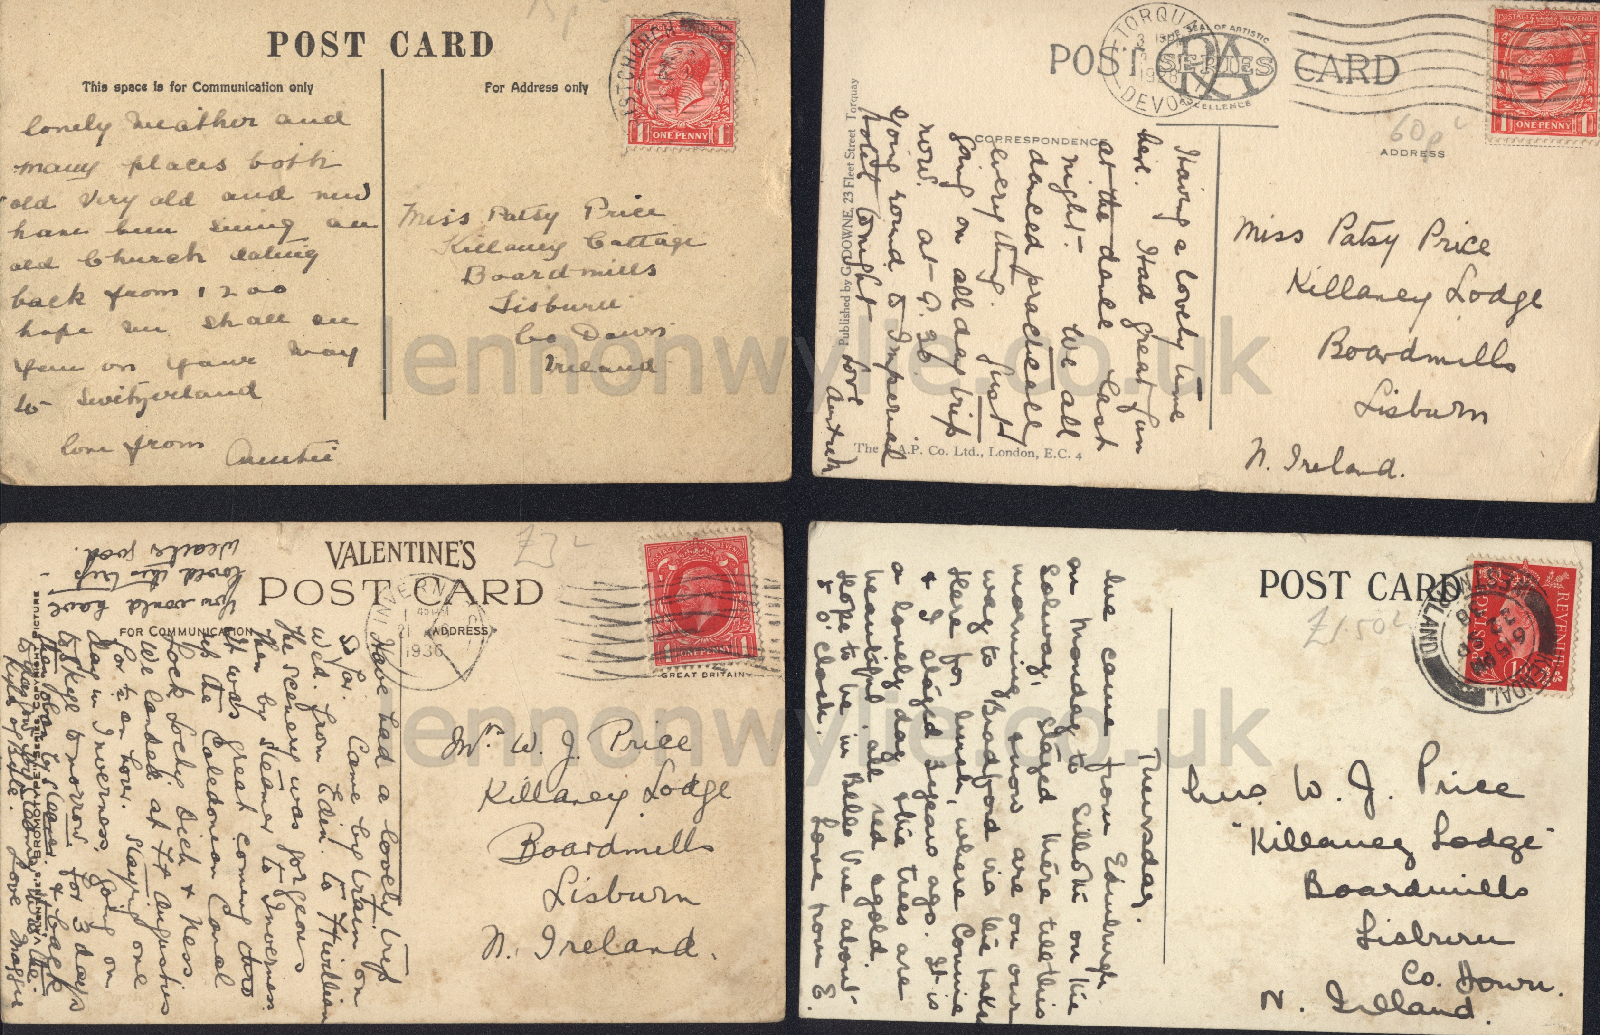 POST CARD
This space is for Communication only
For Address only
ONE PENNY
lovely weather and
many places both
old very old and new
have been seeing an
old Church dating
back from 1200
hope we shall see
you on your way
to Switzerland
love from
Auntie
Miss Patsy Price
Killaney Cottage
Boardmills
Lisburn
Co Down
Ireland
POST CARD
THE SEAL OF ARTISTIC
EXCELLENCE
SERIES
TORQUAY
DEVON
CORRESPONDENCE
ADDRESS
60p
ONE PENNY
Having a lovely time
here. Had great fun
at the dance last
night. We all
danced practically
everything. Just
going on all day trip
now. at 9.30.
going round to Imperial
hotel tonight
love
Published by G. DOWNE, 23 Fleet Street Torquay
The R.A.P. Co. Ltd., London, E.C. 4
Miss Patsy Price
Killaney Lodge
Boardmills
Lisburn
N. Ireland.
VALENTINE'S
POST CARD
FOR COMMUNICATION
ADDRESS
INVERNESS
21
1936
ONE PENNY
GREAT BRITAIN
£3
Have had a lovely trip
so far. Came by train on
Wed. from Edin. to
The scenery was gorgeous
then by steamer to Inverness
it was great coming thro
up the Caledonian Canal
Lock Lochy Oich & Ness
We landed at Ft Augustus
for ½ an hour. Staying one
day in Inverness, going on
to Skye tomorrow for 3 days
& back
Kyle of
Love Maggie
You would have
loved this trip
Weather good.
Mr. W. J. Price
Killaney Lodge
Boardmills
Lisburn
N. Ireland.
POST CARD
£1.50
KENDAL
WESTMORLAND
REVENUE
POSTAGE
Thursday.
We came from Edinburgh
on Monday to Silloth on the
Solway, stayed there till this
morning & now are on our
way to Bradford via the lakes
Here for lunch, where Connie
& I stayed 3 years ago. It is
a lovely day & the trees are
beautiful, all red & gold.
Hope to be in Belle Vue about
5 o'clock.
Love from E.
Mrs. W. J. Price
"Killaney Lodge"
Boardmills
Lisburn
Co. Down.
N. Ireland.
lennonwylie.co.uk
lennonwylie.co.uk